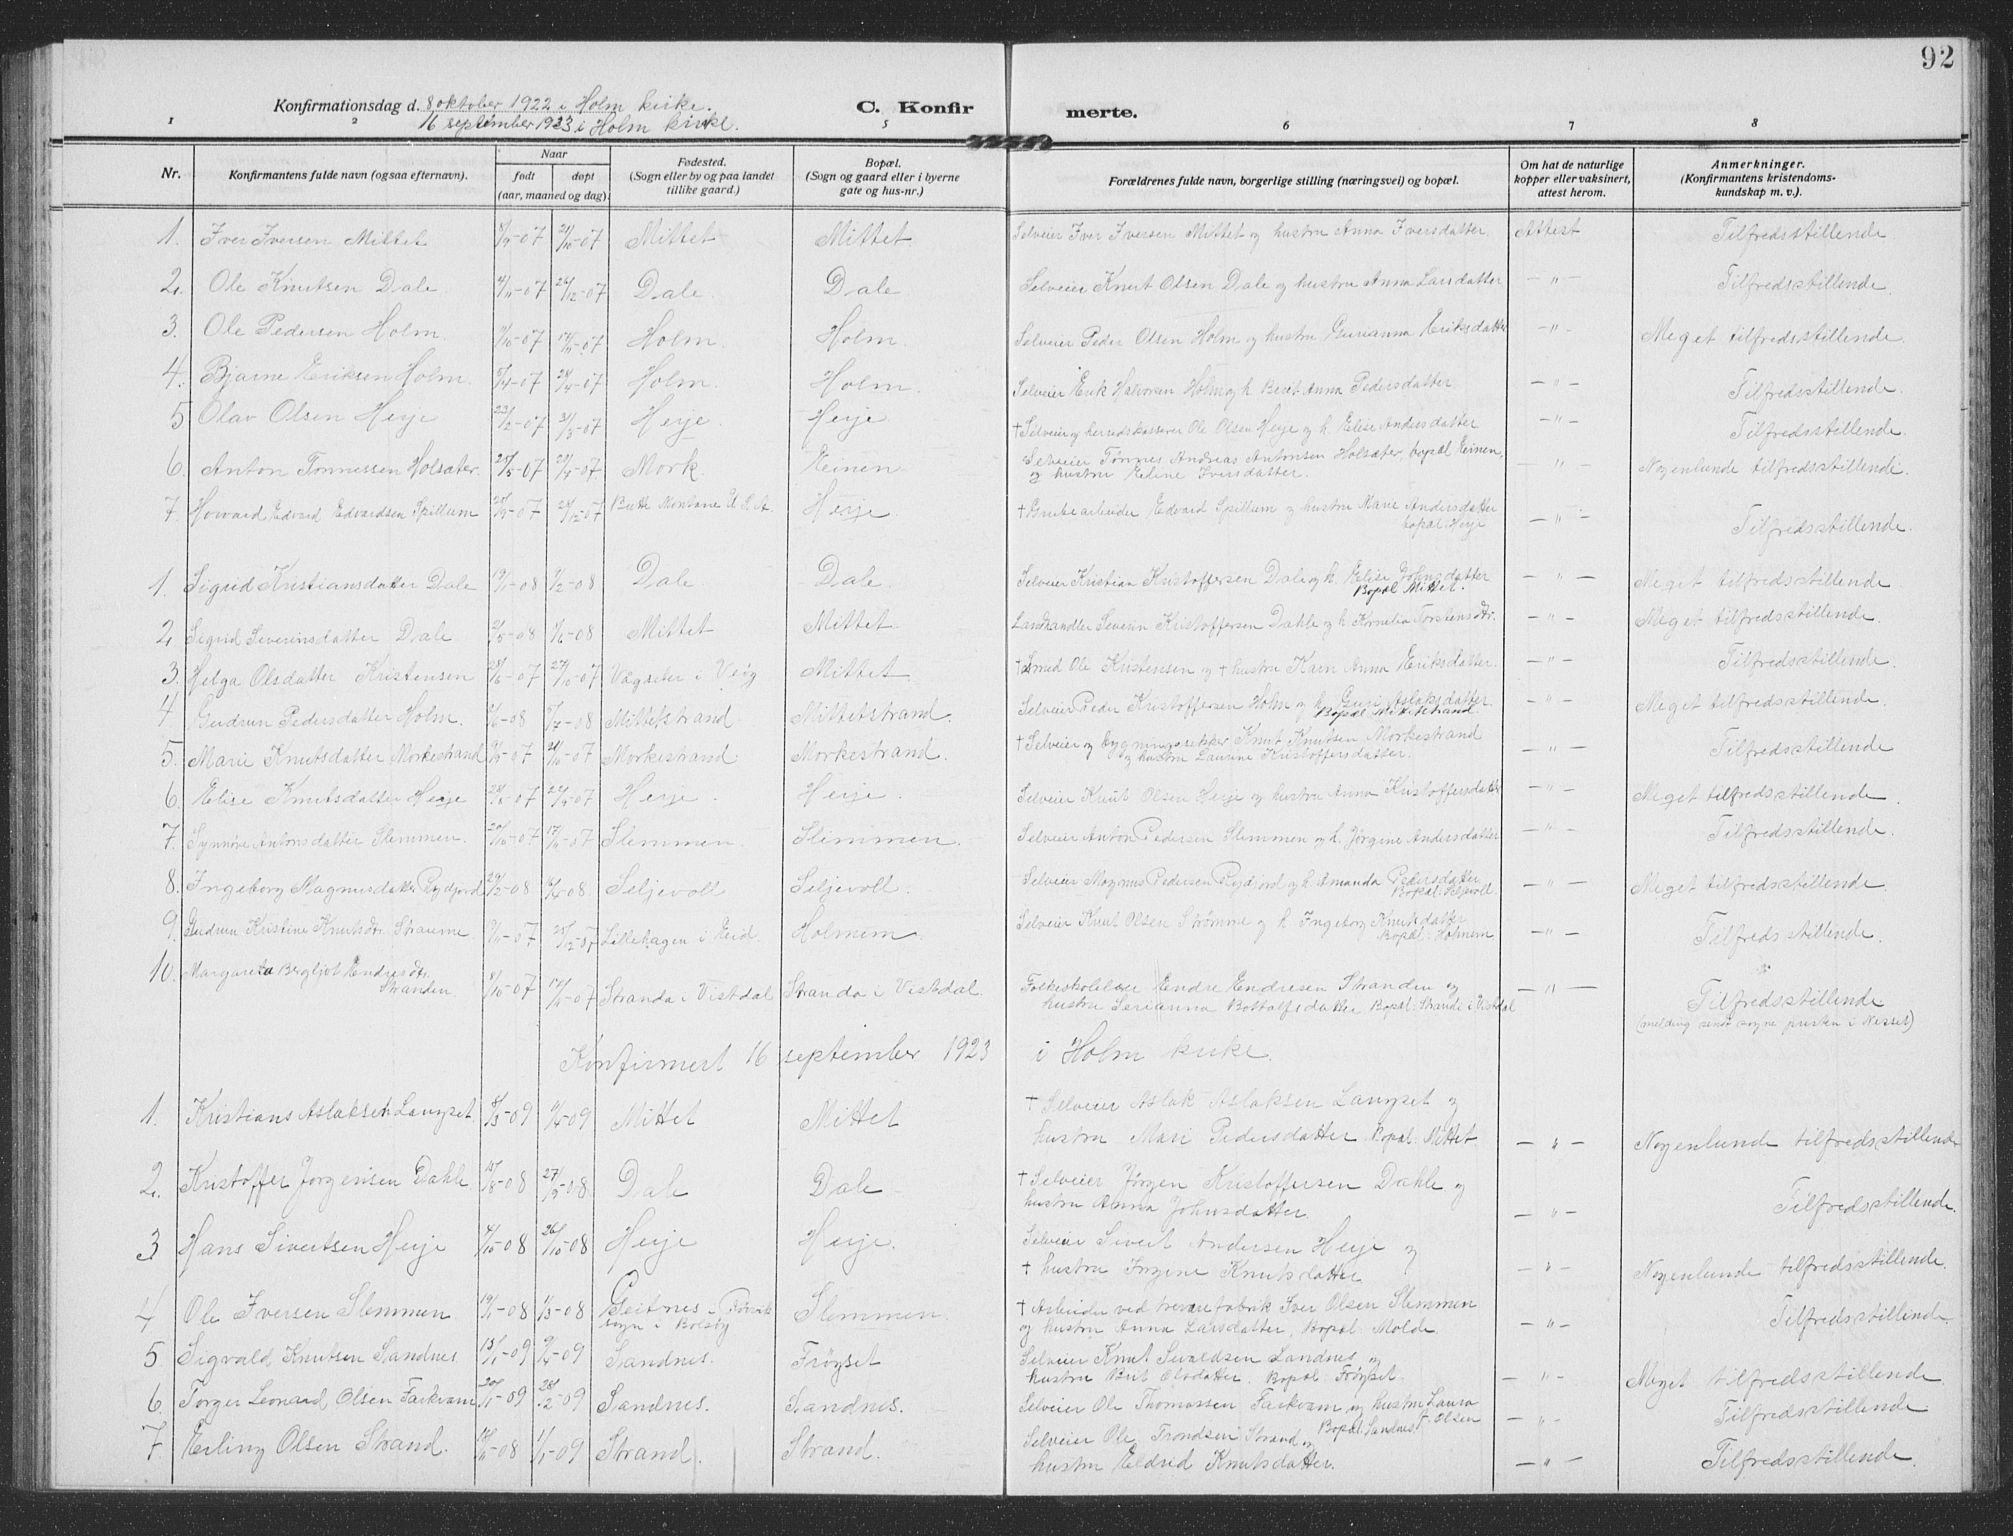 92
Konfirmationsdag d. 8 oktober 1922 i Holm kirke.
16 september 1923 i Holm kirke.
C. Konfir merte.
1 2 5 6 7 8
Nr. Konfirmantens fulde navn (ogsaa efternavn). Naar født døpt (aar, maaned og dag). Fødested. (Sogn eller by og paa landet tillike gaard.) Bopæl. (Sogn og gaard eller i byerne gate og hus-nr.) Forældrenes fulde navn, borgerlige stilling (næringsvei) og bopæl. Om hat de naturlige kopper eller vaksinert, attest herom. Anmerkninger. (Konfirmantens kristendoms-kundskap m. v.).
1. Iver Iversen Mittet -07 -07 Mittet Mittet Selveier Iver Iversen Mittet og hustru Anna Iversdatter. Attest Tilfredsstillende
2. Ole Knutsen Dale -07 -07 Dale Dale Selveier Knut Olsen Dale og hustru Anna Larsdatter — " — Tilfredsstillende.
3. Ole Pedersen Holm. -07 -07 Holm. Holm. Selveier Peder Olsen Holm og hustru Gurianna Eriksdatter — " — Meget tilfredsstillende.
4. Bjarne Eriksen Holm. -07 -07 Holm. Holm. Selveier Erik Halvorsen Holm og h. Berit Anna Pedersdatter — " — Tilfredsstillende.
5 Olav Olsen Heije 23/2-07 31/3-07 Heije. Heije. † Selveier og herredskasserer Ole Olsen Heije og h. Elise Andersdatter — " — Tilfredsstillende.
6. Anton Tønnessen Holsæter. -07 -07 Mork. Einen Selveier Tønnes Andreas Antonsen Holsæter, bopæl Einen,
og hustru Eline Iversdatter. — " — Nogenlunde tilfredsstillende.
7. Howard Edvard Edvardsen Spillum -07 -07 Butte Montana U. S. A. Heije. † Grubearbeider Edvard Spillum og hustru Marie Andersdatter
bopæl Heije — " — Tilfredsstillende.
1. Sigrid Kristiansdatter Dale -08 -08 Dale Dale. Selveier Kristian Kristoffersen Dale og h. Elise Johnsdatter
Bopæl Mittet. — " — Meget tilfredsstillende
2 Sigrid Severinsdatter Dale -08 -08 Mittet Mittet. Landhandler Severin Kristoffersen Dahle og h. Kornelia Torstensdtr. — " — Meget tilfredsstillende.
3. Helga Olsdatter Kristensen -07 -07 Vægseter i Veøy Mittet. † Smed Ole Kristensen og † hustru Karn Anna Eriksdatter. — " — Tilfredsstillende.
4 Gudrun Pedersdatter Holm. -08 -08 Mittetstrand Mittetstrand. Selveier Peder Kristoffersen Holm og h. Guri Aslaksdatter.
Bopæl Mittetstrand — " — Meget tilfredsstillende.
5. Marie Knutsdatter Morkestrand -07 -07 Morkestrand Morkestrand. † Selveier og Knut Knutsen Morkestrand
og hustru Laurine Kristoffersdatter. — " — Tilfredsstillende.
6. Elise Knutsdatter Heije -07 -07 Heije. Heije. Selveier Knut Olsen Heije og hustru Anna Kristoffersdatter — " — Meget tilfredsstillende.
7. Synnøve Antonsdatter Slemmen. -07 -07 Slemmen. Slemmen. Selveier Anton Pedersen Slemmen og h. Jørgine Andersdatter — " — Tilfredsstillende.
8. Ingeborg Magnusdatter Rydjord 29/2-08 -08 Seljevoll Seljevoll. Selveier Magnus Pedersen Rydjord og h. Amanda Pedersdatter
Bopæl: Seljevoll. — " — Meget tilfredsstillende.
9. Gudrun Kristine Knutsdtr. -07 -07 Lillehagen i Eid. Holmem. Selveier Knut Olsen Strømme og h. Ingeborg Knutsdatter
Bopæl: Holmem — " — Tilfredsstillende.
10. Margareta Bergljot Endresdtr.
Stranden. -07 -07 Stranda i Vistdal Stranda i Vistdal. Folkeskolelærer Endre Endresen Stranden og
hustru Serianna Bottolfsdatter Bopæl: Stranda i Vistdal — " — Tilfredsstillende
(melding sendt sogne presten i Nesset)
Konfirmert 16 september 1923 i Holm kirke.
1. Kristians Aslaksen Langset. 8/3-09 -09 Mittet Mittet † Selveier Aslak Aslaksen Langset og
hustru Mari Pedersdatter. Bopæl: Mittet. — " — Nogenlunde tilfredsstillende
2. Kristoffer Jørgensen Dahle. -08 27/9-08 Dale Dale † Selveier Jørgen Kristoffersen Dahle og
hustru Anna Johnsdatter. — " — Tilfredsstillende.
3 Hans Sivertsen Heije 4/10-08 26/10-08 Heije Heije. Selveier Sivert Andersen Heije og
† hustru Jørgine Knutsdatter — " — Nogenlunde tilfredsstillende.
4 Ole Iversen Slemmen -08 1/3-08 Geitnes i Rørvik
sogn i Bolsøy Slemmen. † Arbeider ved trevarefabrik Iver Olsen Slemmen
og hustru Anna Larsdatter, Bopæl: Molde. — " — Tilfredsstillende.
5 Sigvald Knutsen Sandnes. -09 -09 Sandnes. Frøyset Selveier Knut Sivaldsen Sandnes og
hustru Brit Olsdatter. Bopæl Frøyset. — " — Meget tilfredsstillende.
6. Torger Leonard Olsen Farkvam -09 28/2-09 Sandnes. Sandnes. Selveier Ole Thomassen Farkvam og hustru Laura
F. Olsen Bopæl: Sandnes. — " — Tilfredsstillende
7. Erling Olsen Strand. -08 1/1-09 Strand. Strand. Selveier Ole Trondsen Strand og
hustru Eldrid Knutsdatter. — " — Tilfredsstillende.